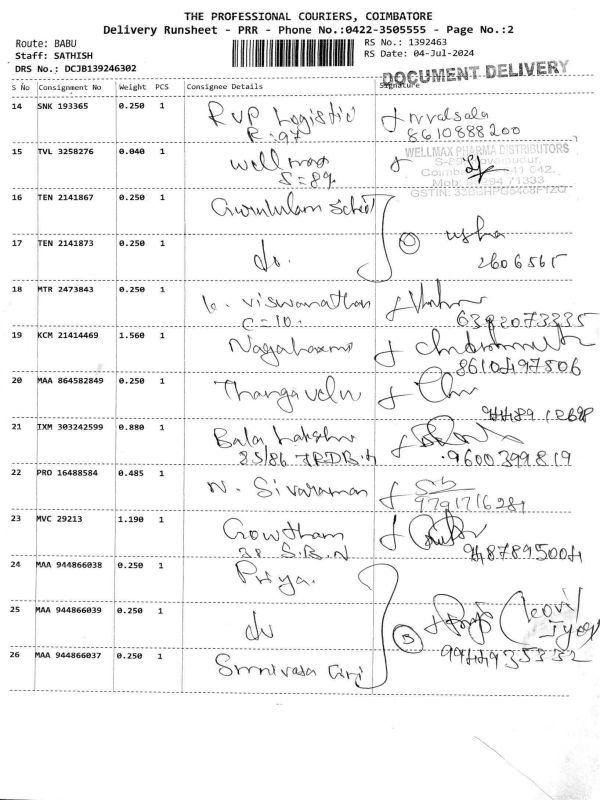 THE PROFESSIONAL COURIERS, COIMBATORE
Delivery Runsheet - PRR - Phone No.:0422-3505555 - Page No.:2
Route: BABU
RS No.: 1392463
Staff: SATHISH
RS Date: 04-Jul-2024
DRS No.: DCJB139246302
DOCUMENT DELIVERY
S No Consignment No Weight PCS Consignee Details Signature
14 SNK 193365 0.250 1 RVP Logistic
R:97
8610888200
15 TVL 3258276 0.040 1 Wellmax
S=89.
WELLMAX PHARMA DISTRIBUTORS
16 TEN 2141867 0.250 1 Gurukulam School
17 TEN 2141873 0.250 1 do. usha
2606565
18 MTR 2473843 0.250 1 k. viswanathan
C=10.
6392073335
19 KCM 21414469 1.560 1
8610497806
20 MAA 864582849 0.250 1 Thangavelu
21 IXM 303242599 0.880 1 Bala Lakshmi
85/86
9600399819
22 PRO 16488584 0.485 1 N. Sivaraman
9791716281
23 MVC 29213 1.190 1 Gowtham
38 S.B.N
9487895004
24 MAA 944866038 0.250 1 Priya.
25 MAA 944866039 0.250 1 do
3
26 MAA 944866037 0.250 1 Srinivasa Giri
9944935332